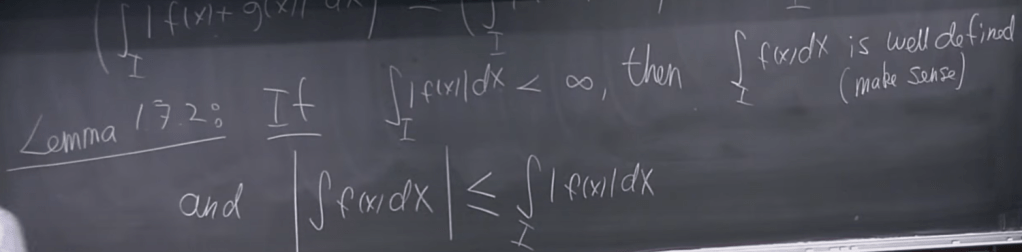 (∫_I |f(x)+g(x)| dx) = (∫_I
Lemma 17.2: If ∫_I |f(x)|dx < ∞, then ∫_I f(x)dx is well defined
(make sense)
and |∫f(x)dx| ≤ ∫_I |f(x)|dx